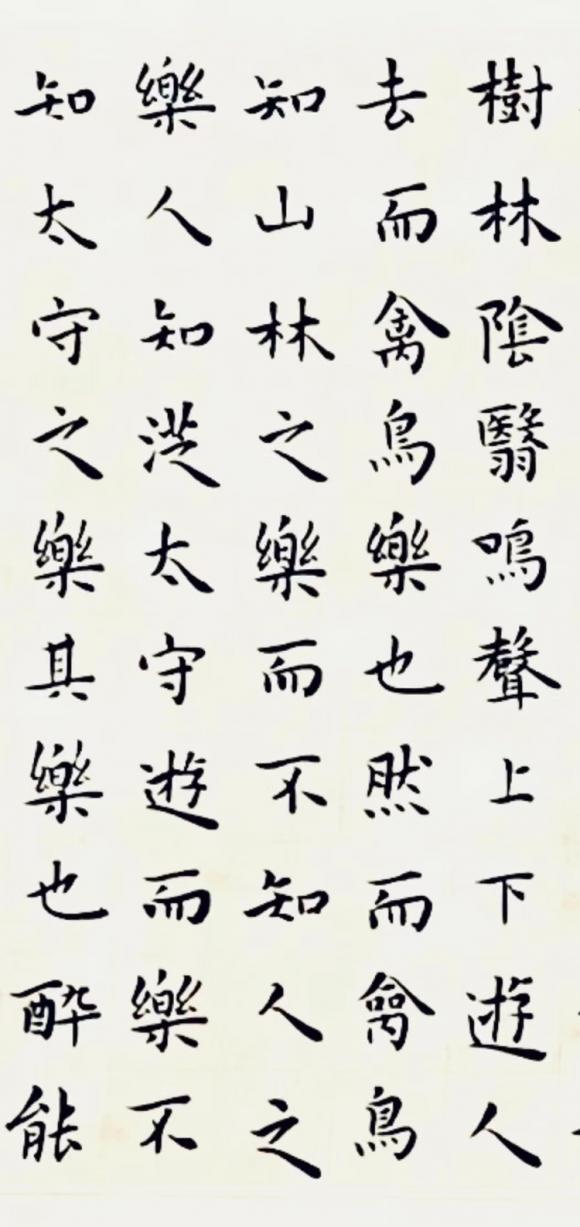 樹林陰翳鳴聲上下遊人
去而禽鳥樂也然而禽鳥
知山林之樂而不知人之
樂人知從太守遊而樂不
知太守之樂其樂也醉能